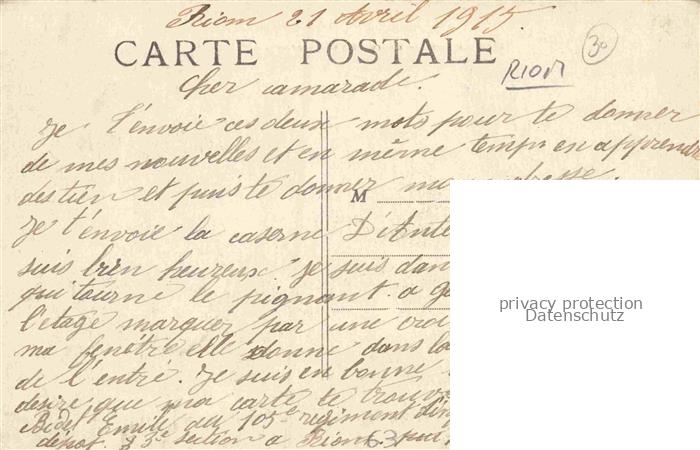 Riom 21 Avril 1915
CARTE POSTALE
RIOM
30
Cher camarade.
Je t'envoie ces deux mots pour te donner
de mes nouvelles et en même temps en apprendre
des tien et puis te donner mon
M
Je t'envoie la caserne D'Ante
suis bien heureux. Je suis dan
qui tourne le pignant. a
l'etage marquer par une croi
ma fenêtre elle donne dans la
de l'entré. Je suis en bonne
desire que ma carte te trouve
Bidet Emile du 105e regiment d'in
dépot. 3e section a Riom 63
privacy protection
Datenschutz